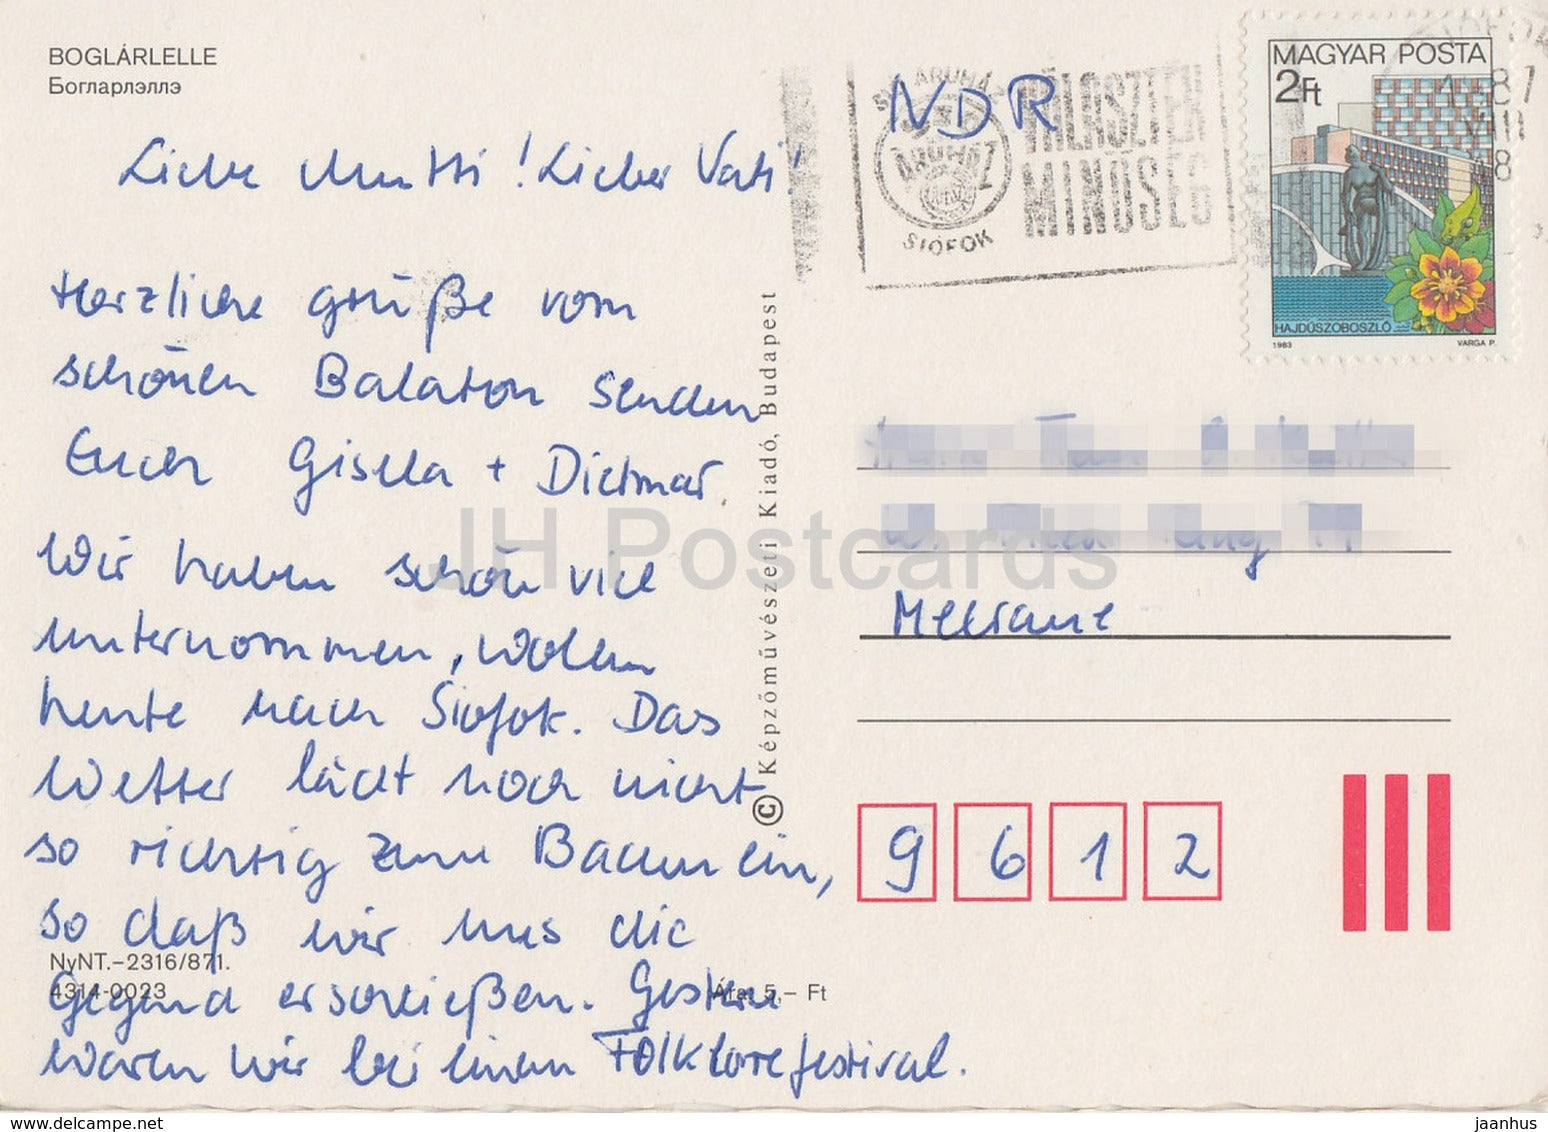 BOGLÁRLELLE
Богларлэллэ
Liebe Mutti! Lieber Vati!
Herzliche Grüße vom
schönen Balaton senden
Euch Gisela + Dietmar.
Wir haben schon viel
unternommen, wollen
heute nach Siofok. Das
Wetter lädt noch nicht
so richtig zum Baden ein,
so daß wir uns die
Gegend erschließen. Gestern
waren wir bei einem Folklorefestival.
NyNT.-2316/871.
4314-0023
Ára: 5,– Ft
© Képzőművészeti Kiadó, Budapest
NDR
ÁRUHÁZ
SIÓFOK
VÁLASZTÉK
MINŐSÉG
MAGYAR POSTA
2Ft
HAJDÚSZOBOSZLÓ
1983 VARGA P.
Meerane
9 6 1 2
JH Postcards
www.delcampe.net
jaanhus